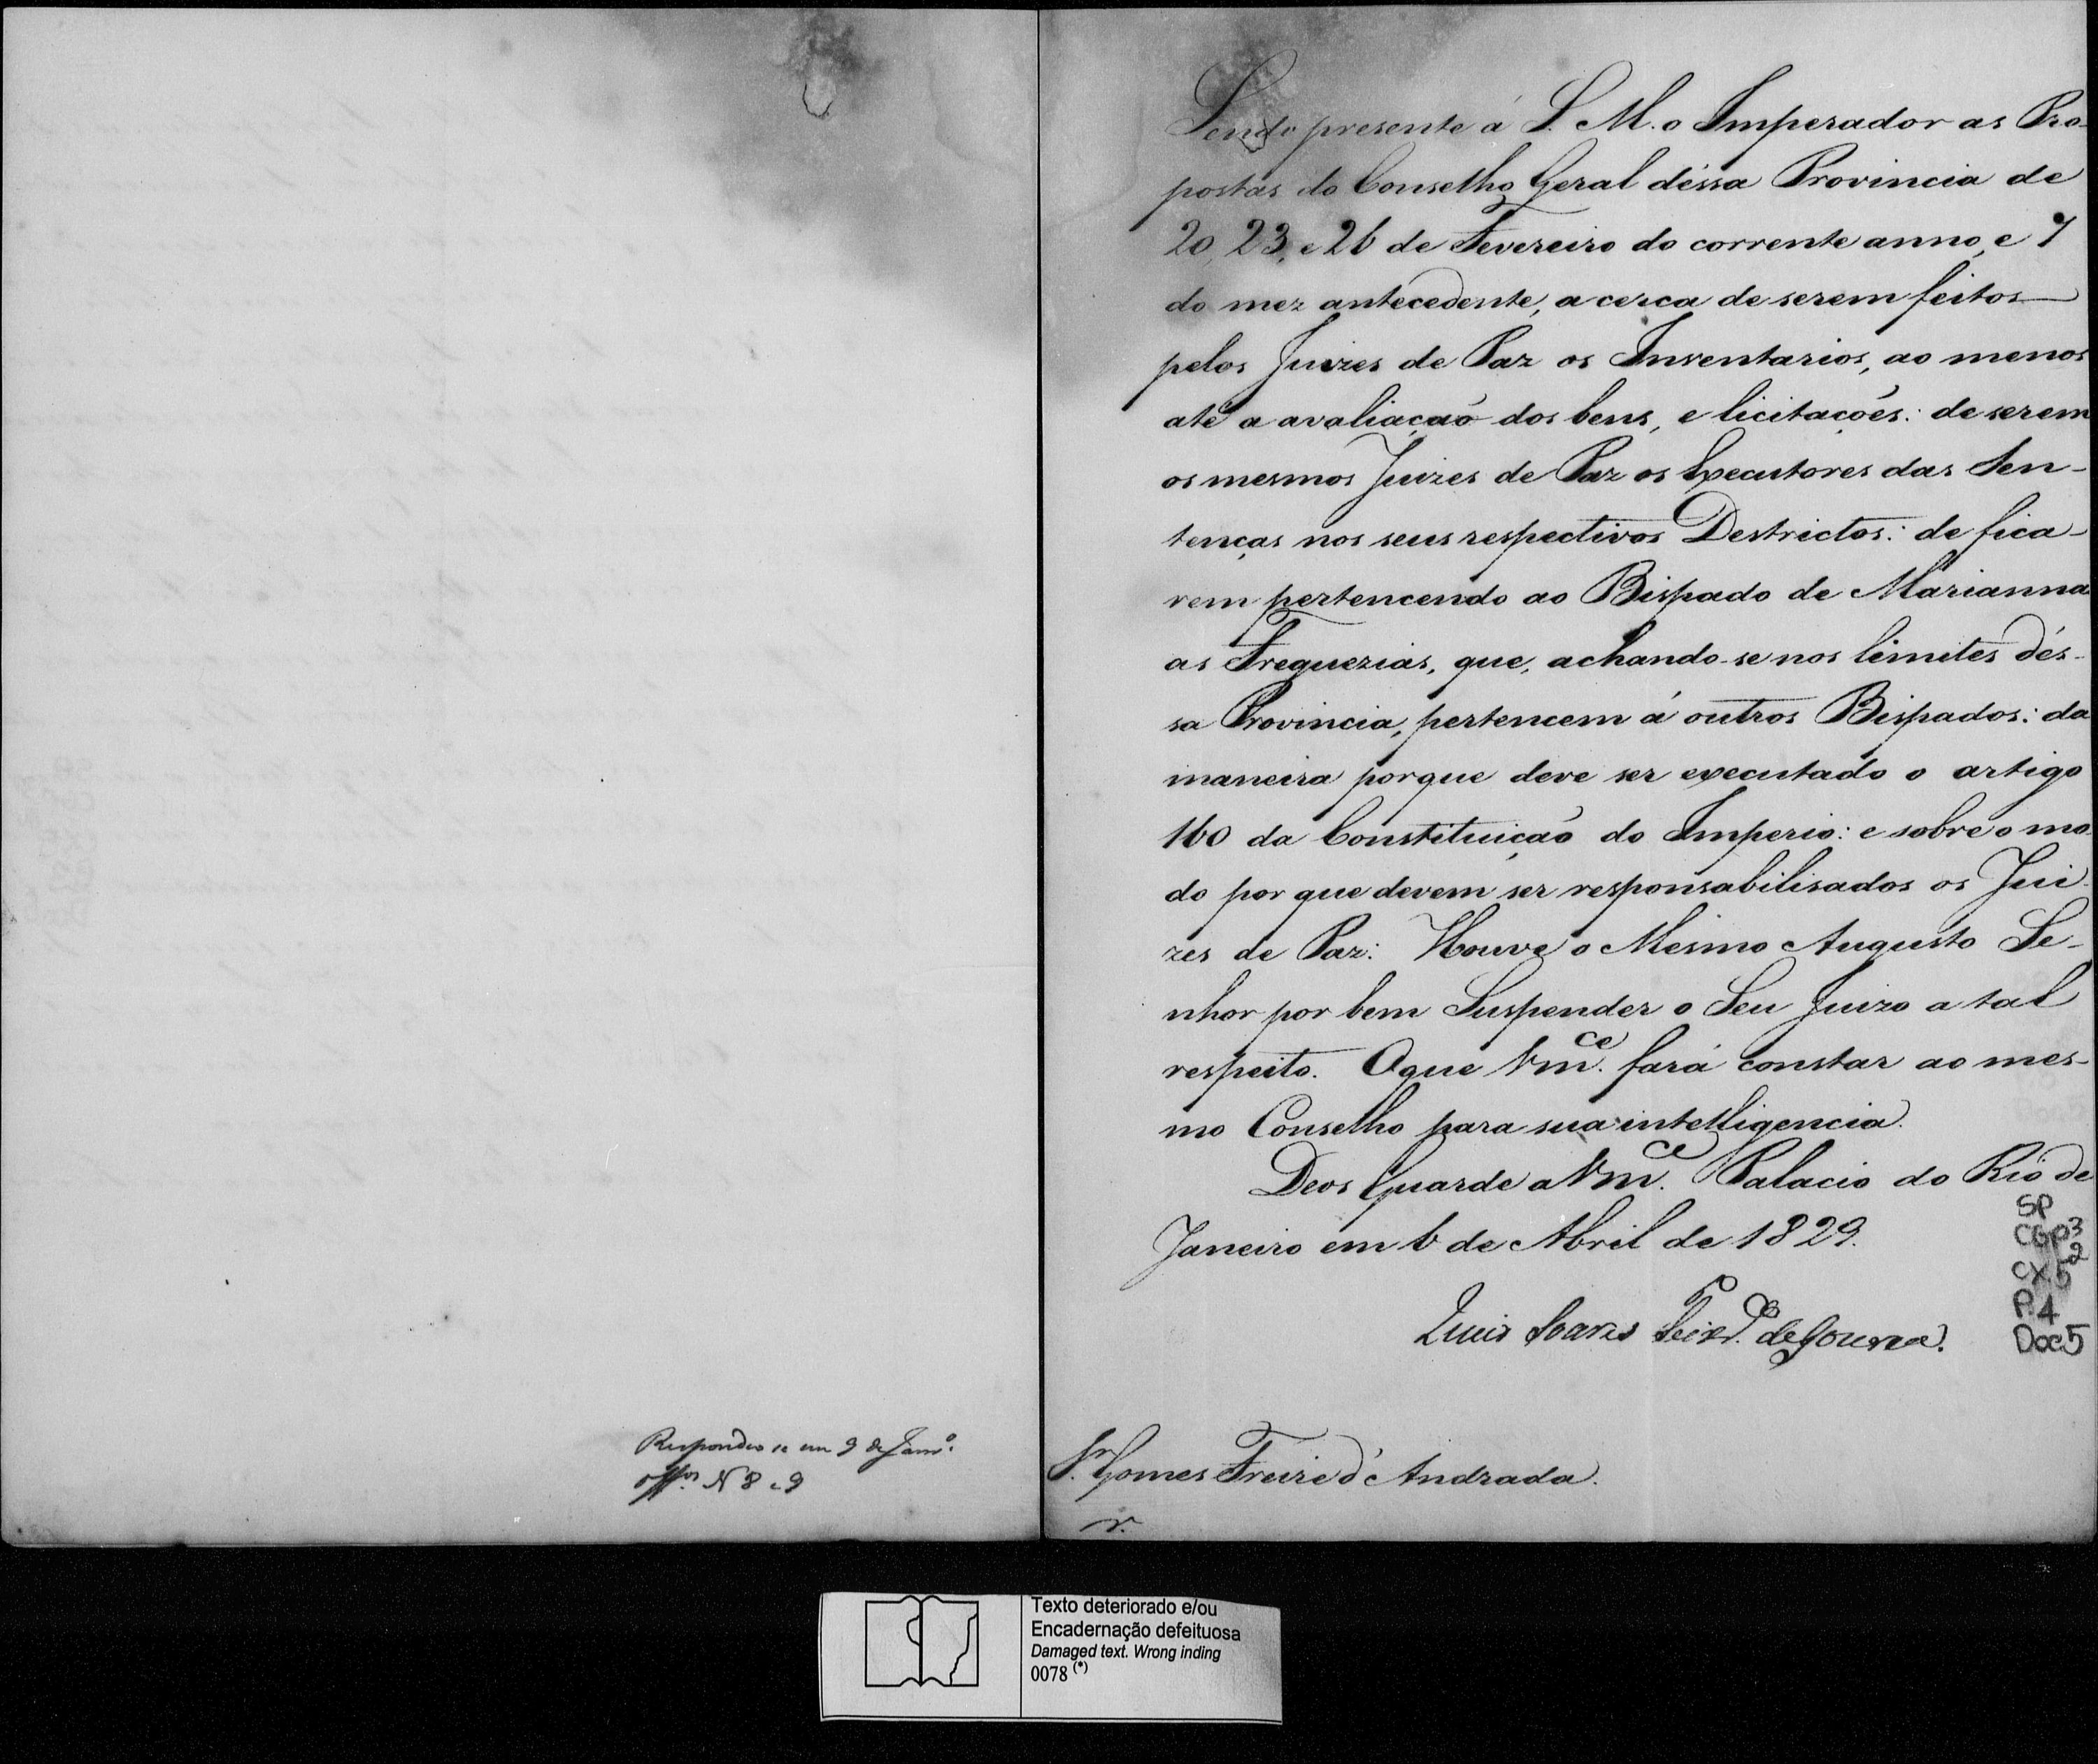 Respondeo se em 9 de Jan.º
off.os N 8 e 9
Sendo presente á S. M. o Imperador as Pro-
postas do Conselho Geral déssa Provincia de
20, 23, e 26 de Fevereiro do corrente anno, e 7
do mez antecedente, a cerca de serem feitos
pelos Juizes de Paz os Inventarios, ao menos
até a avaliação dos bens, e licitações: de serem
os mesmos Juizes de Paz os Executores das Sen-
tenças nos seus respectivos Destrictos: de fica-
rem pertencendo ao Bispado de Marianna
as Freguezias, que, achando-se nos limites dés-
sa Provincia, pertencem á outros Bispados: da
maneira porque deve ser executado o artigo
160 da Constituição do Imperio: e sobre o mo-
do por que devem ser responsabilisados os Jui-
zes de Paz: Houve o Mesmo Augusto Se-
nhor por bem Suspender o Seu Juizo a tal
respeito. O que Vm.ce fará constar ao mes-
mo Conselho para sua intelligencia.
Deos Guarde a Vm.ce Palacio do Rio de
Janeiro em 6 de Abril de 1829.
SP
CGP3
CX.52
P.4
Doc5
Luis Soares Teix.ra de Gouvea.
S.r Gomes Freire d'Andrada.
Texto deteriorado e/ou
Encadernação defeituosa
Damaged text. Wrong inding
0078 (*)